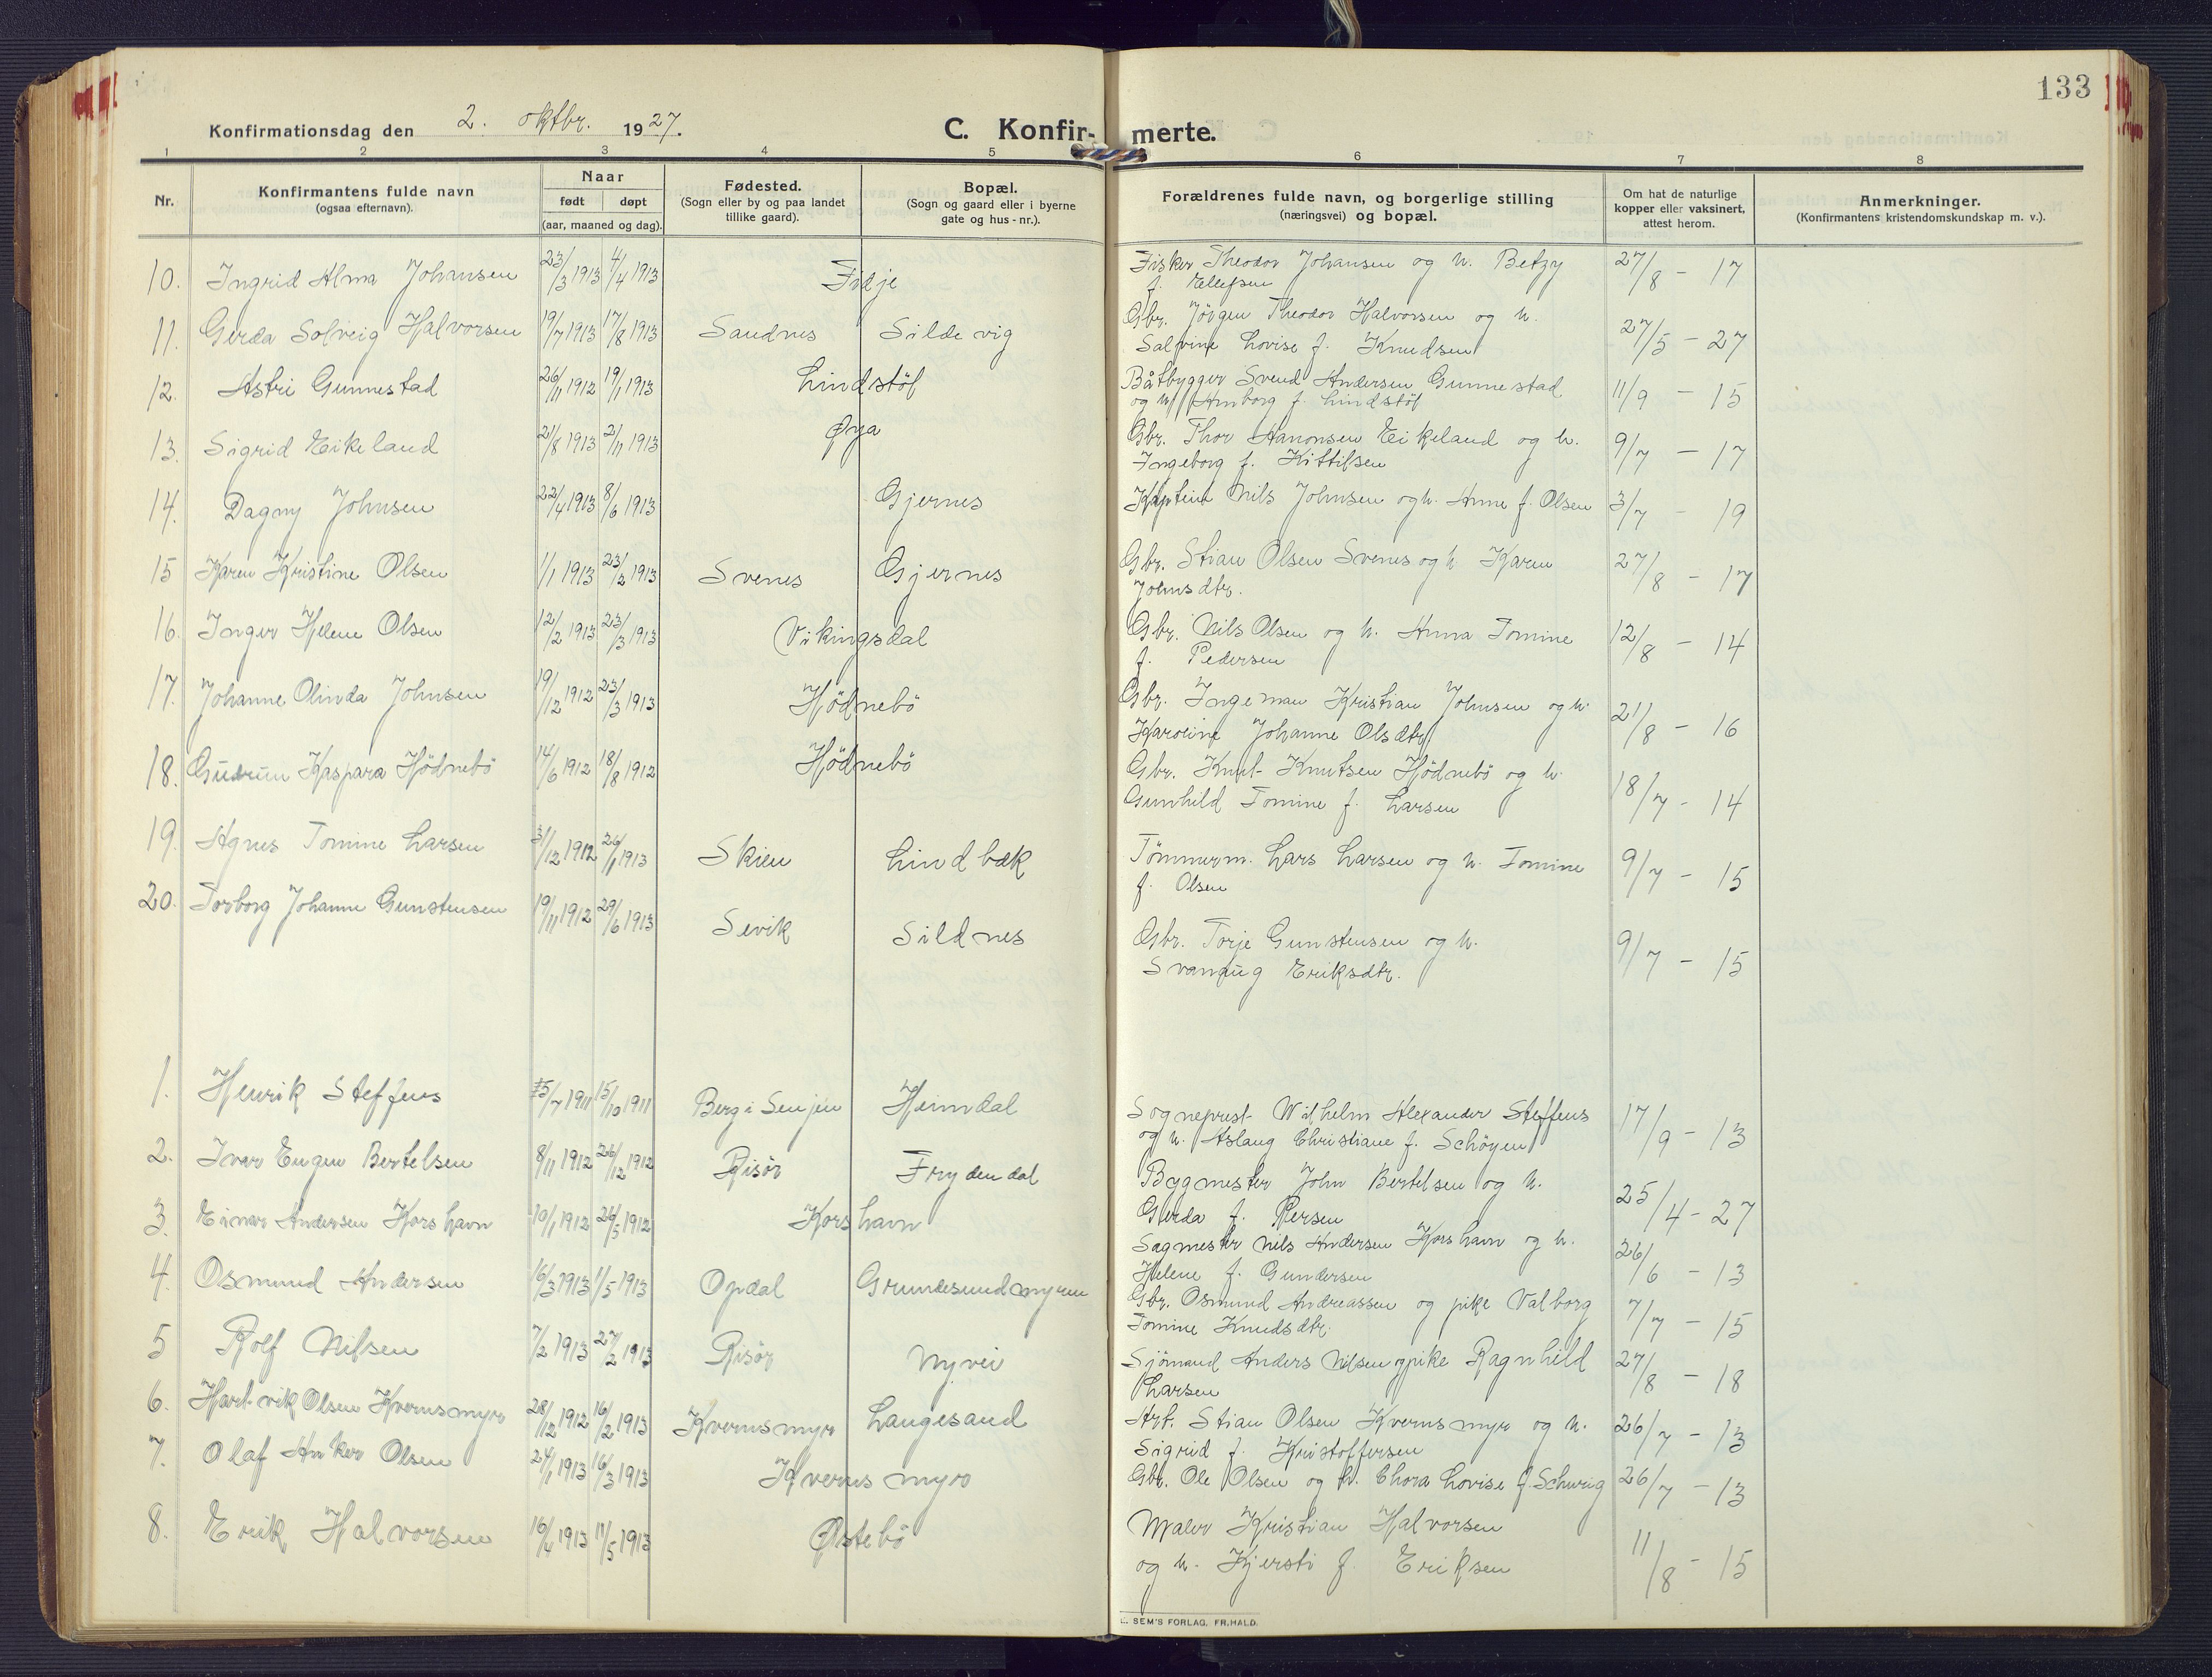 133
Konfirmationsdag den 2. oktbr. 1927.
C. Konfir- merte.
1 2 3 4 5 6 7 8
Nr.
Konfirmantens fulde navn
(ogsaa efternavn).
Naar
født døpt
(aar, maaned og dag).
Fødested.
(Sogn eller by og paa landet
tillike gaard).
Bopæl.
(Sogn og gaard eller i byerne
gate og hus-nr.).
Forældrenes fulde navn, og borgerlige stilling
(næringsvei) og bopæl.
Om hat de naturlige
kopper eller vaksinert,
attest herom.
Anmerkninger.
(Konfirmantens kristendomskundskap m. v.).
10. Ingrid Alma Johansen 23/3 1913 4/4 1913 Fidje Fisker Theodor Johansen og h. Betzy 27/8 - 17
f. Ellefsen
11. Gerda Solveig Halvorsen 19/7 1913 17/8 1913 Sandnes Sildevig Gbr. Jörgen Theodor Halvorsen og h. 27/5 - 27
Salvine Lovise f. Knudsen
12. Astri Gunnestad 26/11 1912 19/1 1913 Lindstöl Båtbygger Svend Andersen Gunnestad 11/9 - 15
og h. Amborg f. Lindstöl
13. Sigrid Eikeland 21/8 1913 2/11 1913 Øya Gbr. Thor Aanonsen Eikeland og h. 9/7 - 17
Ingeborg f. Kittilsen
14. Dagny Johnsen 22/4 1913 8/6 1913 Gjernes Kaptein Nils Johnsen og h. Anne f. Olsen 3/7 - 19
15 Karen Kristine Olsen 1/1 1913 23/2 1913 Svenes Gjernes Gbr. Stian Olsen Svenes og h Karen 27/8 - 17
Johnsdtr.
16. Inger Helene Olsen 12/2 1913 23/3 1913 Vikingsdal Gbr. Nils Olsen og h. Anna Tomine 12/8 - 14
f. Pedersen
17. Johanne Olinda Johnsen 19/12 1912 23/3 1913 Hödnebö Gbr. Ingeman Kristian Johnsen og h. 21/8 - 16
Karoline Johanne Olsdtr
18. Gudrun Kaspara Hödnebö 14/6 1912 18/8 1912 Hödnebö Gbr. Knut Knutsen Hödnebö og h. 18/7 - 14
Gunhild Tomine f. Larsen
19. Agnes Tomine Larsen 31/12 1912 26/1 1913 Skien Lindbæk Tömmerm. Lars Larsen og h. Tomine 9/7 - 15
f. Olsen
20. Torborg Johanne Gunstensen 19/11 1912 29/6 1913 Sevik Sildnes Gbr. Torje Gunstensen og h. 9/7 - 15
Svanaug Eriksdtr.
1. Henrik Steffens 15/7 1911 15/10 1911 Berg i Senjen Heimdal Sogneprest Wilhelm Alexander Steffens 17/9 - 13
og h. Aslaug Christiane f. Schöyen
2. Ivar Eugen Bertelsen 8/11 1912 26/12 1912 Risör Frydendal Bygmester John Bertelsen og h. 25/4 - 27
Gerda f. Persen
3. Einar Andersen Korshavn 10/1 1912 26/5 1912 Korshavn Sagmester Nils Andersen Korshavn og h. 26/6 - 13
Helene f. Gundersen
4. Osmund Andersen 16/3 1913 1/5 1913 Opdal Grundesundmyren Gbr. Osmund Andreassen og pike Valborg 7/7 - 15
Tomine Knudsdtr.
5 Rolf Nilsen 7/2 1913 27/2 1913 Risör Nyvei Sjömand Anders Nilsen og pike Ragnhild 27/8 - 18
Larsen
6. Hartvik Olsen Kvernsmyr 28/12 1912 16/2 1913 Kvernsmyr Langesand Arb. Stian Olsen Kvernsmyr og h. 26/7 - 13
Sigrid f. Kristoffersen
7. Olaf Anker Olsen 24/1 1913 16/3 1913 Kvernsmyr Gbr. Ole Olsen og h. Thora Lovise f. Schwrig 26/7 - 13
8. Erik Halvorsen 16/4 1913 11/5 1913 Østebö Maler Kristian Halvorsen 11/8 - 15
og h. Kjersti f. Eriksen
SEM'S FORLAG. FR. HALD.